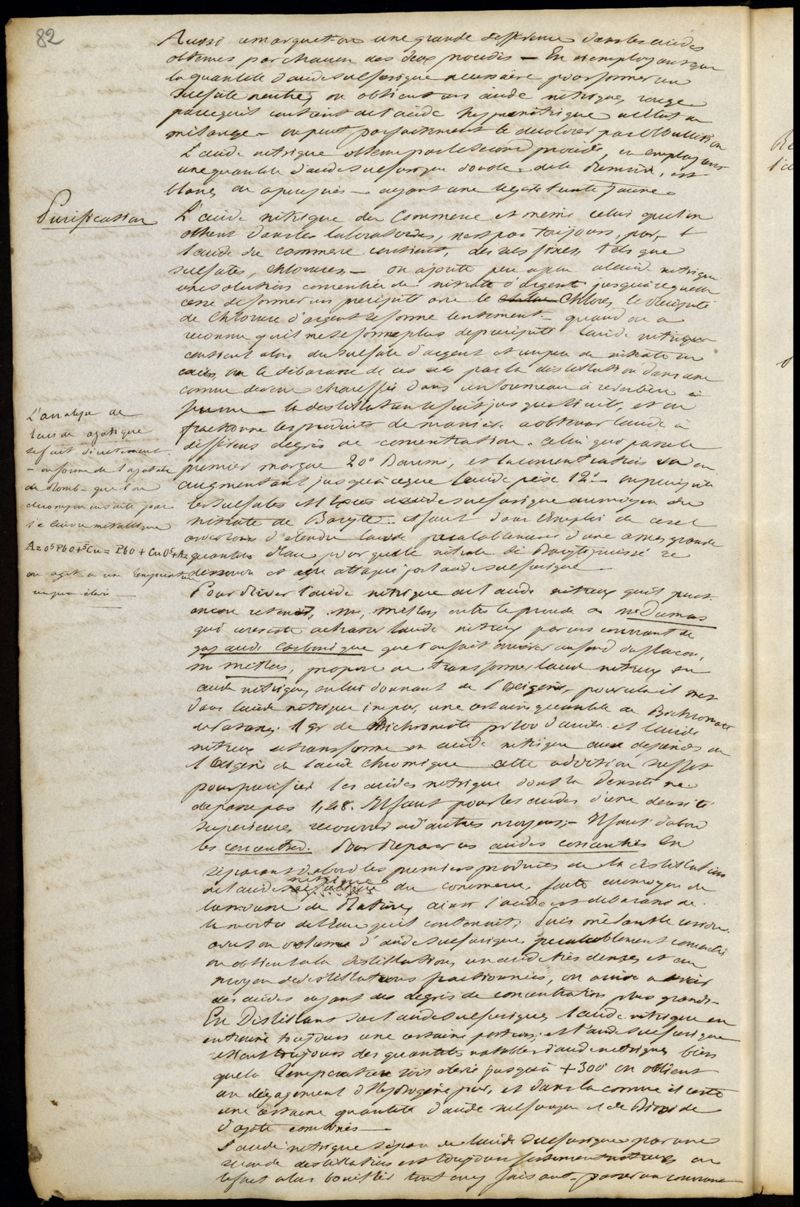 82
Aussi remarque-t-on une grande différence dans les acides
obtenus par chacun des deux procédés — En n'employant que
la quantité d'acide sulfurique nécessaire pour former un
sulfate neutre, on obtient un acide nitrique, rouge
parcequ'il contient de l'acide hyponitrique
mélange — on peut parfaitement le décolorer par ébullition
L'acide nitrique obtenu par le second procédé, en employant
une quantité d'acide sulfurique double de la première, est
blanc, ou à peu près — ayant une légère teinte jaune.
Purification
L'acide nitrique du Commerce et même celui que l'on
obtient dans les laboratoires, n'est pas toujours, pur,
l'acide du commerce contient, des sels fixes, tels que
sulfates, chlorures, — on ajoute peu à peu à l'acide nitrique
une solution concentrée de nitrate d'argent jusqu'à ce que
cesse de former un précipité avec le Chlore, le précipité
de Chlorure d'argent se forme lentement — quand on a
reconnu qu'il ne se forme plus de précipité l'acide nitrique
contient alors du sulfate d'argent et un peu de nitrate en
excès, on le débarasse de ces sels par la distillation dans une
cornue de verre chauffée dans un fourneau à réverbère à
— la distillation se fait jusqu'à siccité, et on
fractionne les produits de manière à obtenir l'acide à
différens degrés de concentration. Celui qui passe le
premier marque 20° Baumé, et la concentration va en
augmentant jusqu'à ce que l'acide pèse on précipite
les sulfates et l'excès d'acide sulfurique au moyen du
nitrate de Baryte. Il faut dans l'emploi de ce sel
avoir soin d'étendre l'acide préalablement d'une assez grande
quantité d'eau pour que le nitrate de Baryte puisse se
dissoudre et être attaqué par l'acide sulfurique
L'analyse de
l'acide azotique
se fait directement
— on forme de l'azotate
de plomb — que l'on
décompose ensuite par
le cuivre métallique
AzO⁵PbO + Cu = PbO + CuO Az
on agit à une température
un peu élevée
Pour priver l'acide nitrique de l'acide nitreux qu'il peut
encore retenir, on, met en outre le procédé de Mr Dumas
qui consiste à chasser l'acide nitreux par un courant de
gaz acide carbonique que l'on fait arriver au fond du flacon,
Mr Millon, propose de transformer l'acide nitreux en
acide nitrique, en lui donnant de l'oxigène, pour cela il met
dans l'acide nitrique impur, une certaine quantité de Bichromate
de Potasse, 1 gr de Bichromate pr 100 d'acide. et l'acide
nitreux se transforme en acide nitrique aux dépends de
l'oxigène de l'acide chromique cette addition suffit
pour purifier les acides nitrique dont la densité ne
dépasse pas 1,48. Il faut pour les acides d'une densité
supérieure, recourir à d'autres moyens, — Il faut d'abord
les concentrer. Pour préparer ces acides concentrés En
séparant d'abord les premiers produits de la distillation
de l'acide nitrique du commerce, faite au moyen de
la cornue de Platine, ainsi l'acide est débarassé de
la moitié de l'eau qu'il contenait, puis mêlant le
avec un volume d'acide sulfurique, préalablement concentré
on obtient à la distillation, un acide très dense, et au
moyen de distillations fractionnées, on arrive à avoir
des acides ayant des degrés de concentration plus grands.
En Distillant sur l'acide sulfurique, l'acide nitrique en
entraîne toujours une certaine portion, et l'acide sulfurique
retient toujours des quantités notables d'acide nitrique, bien
que la température soit élevée jusqu'à +300° on obtient
un dégagement d'Hydrogène pur, et dans la cornue il reste
une certaine quantité d'acide sulfurique et de Bioxide
d'azote combinés —
L'acide nitrique séparé de l'acide sulfurique par une
seconde distillation est toujours on
le fait alors bouillir tout en y faisant passer un courant